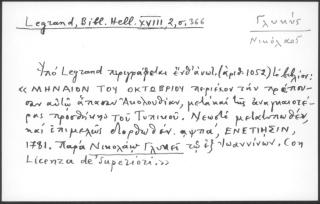 Legrand, Bibl. Hell. XVIII, 2, σ. 366
Γλυκύς
Νικόλαος
Ὑπὸ Legrand περιγράφεται ἐνθ' ἀνωτ. (ἀριθ. 1052) τὸ βιβλίον:
« ΜΗΝΑΙΟΝ ΤΟΥ ΟΚΤΩΒΡΙΟΥ περιέχον τὴν πρέπου-
σαν αὐτῷ ἅπασαν Ἀκολουθίαν, μετὰ καὶ τῆς ἀναγκαιοτέ-
ρας προσθήκης τοῦ Τυπικοῦ. Νεωστὶ μετατυπωθέν,
καὶ ἐπιμελῶς διορθωθέν. αψπα, ΕΝΕΤΙΗΣΙΝ,
1781. Παρὰ Νικολάῳ Γλυκεῖ τῷ ἐξ Ἰωαννίνων, Con
Licenza de' Superiori.»